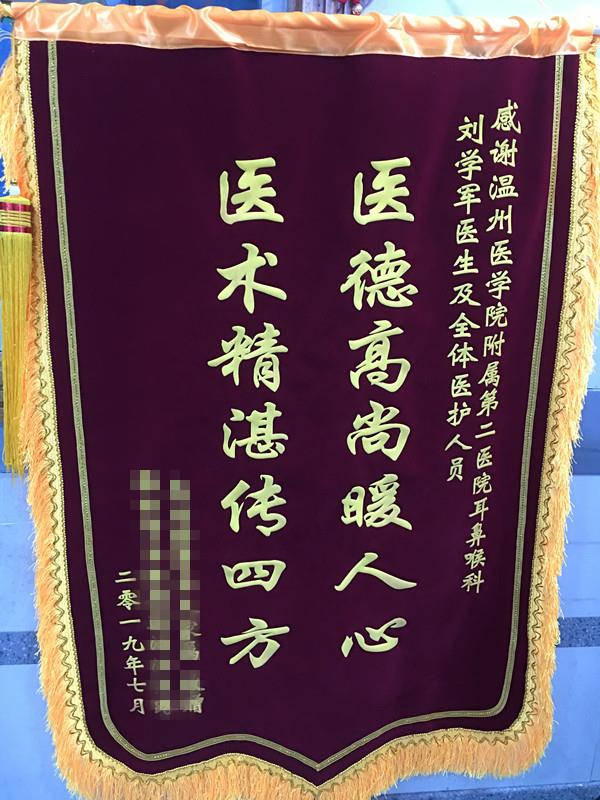 感谢温州医学院附属第二医院耳鼻喉科
刘学军医生及全体医护人员
医德高尚暖人心
医术精湛传四方
二零一九年七月